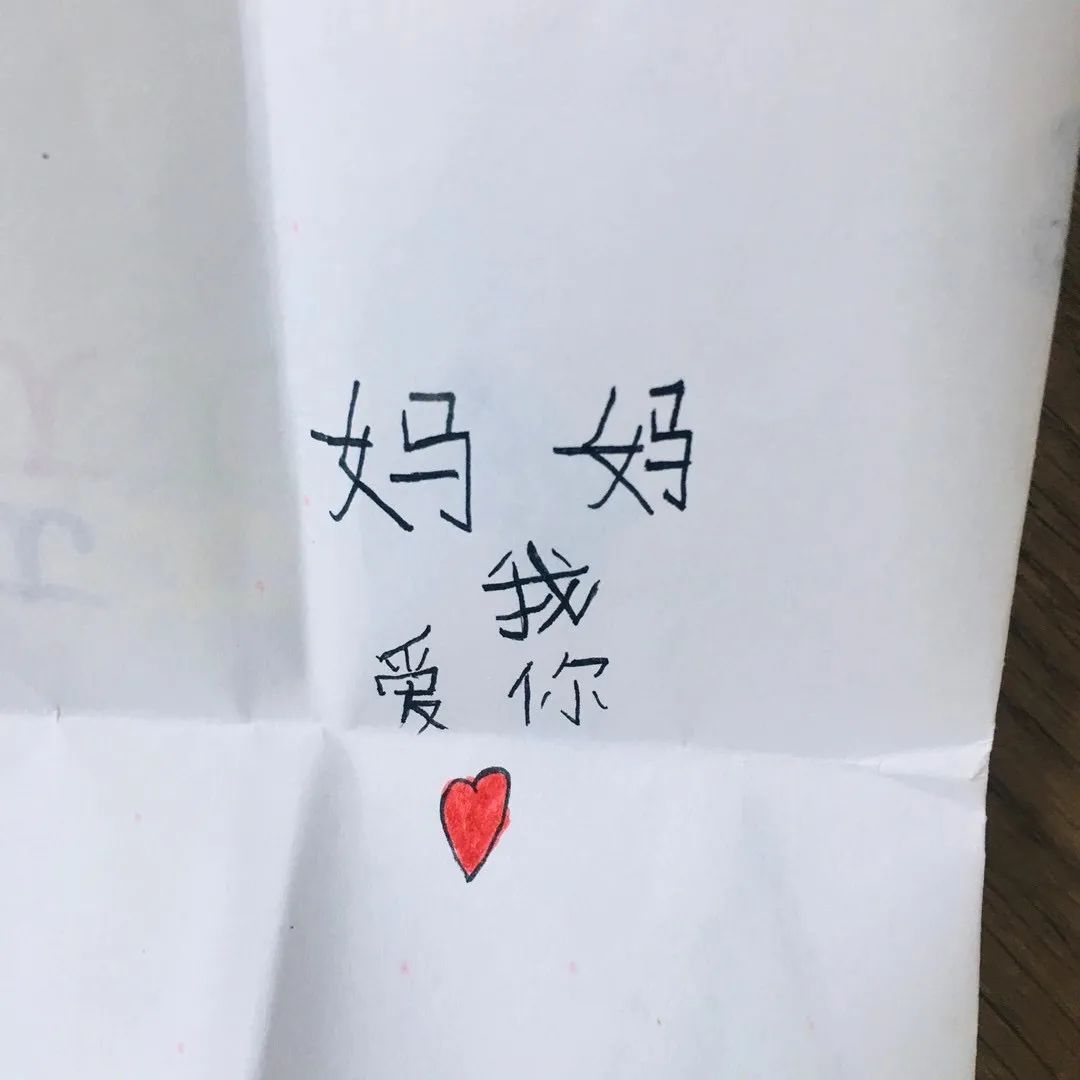 妈妈
我
爱你